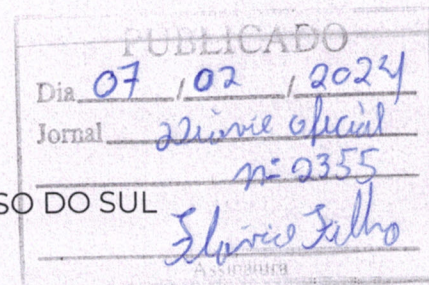 PUBLICADO
Dia 07 / 02 / 2024
Jornal Diário oficial
nº 2355
SO DO SUL
Flavio Filho
Assinatura